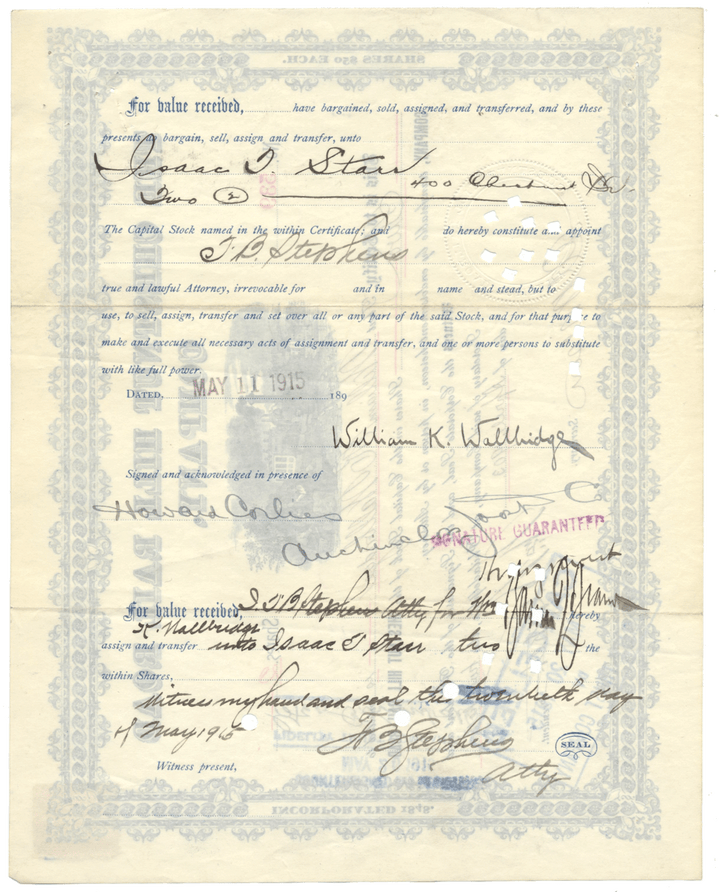 For value received, have bargained, sold, assigned, and transferred, and by these
presents do bargain, sell, assign and transfer, unto
Isaac T. Starr 400 Chestnut St.
Two (2)
The Capital Stock named in the within Certificate; and do hereby constitute and appoint
T. B. Stephens
true and lawful Attorney, irrevocable for and in name and stead, but to
use, to sell, assign, transfer and set over all or any part of the said Stock, and for that purpose to
make and execute all necessary acts of assignment and transfer, and one or more persons to substitute
with like full power.
DATED, MAY 11 1915 189
William K. Wallbridge
Signed and acknowledged in presence of
Howard Corlies
SIGNATURE GUARANTEED
For value received, I T B Stephens Atty for Wm hereby
K. Wallbridge
assign and transfer unto Isaac T Starr two the
within Shares,
Witness my hand and seal this twentieth day
of May 1915 T B Stephens SEAL
Atty
Witness present,
SHARES $50 EACH.
INCORPORATED 1848.